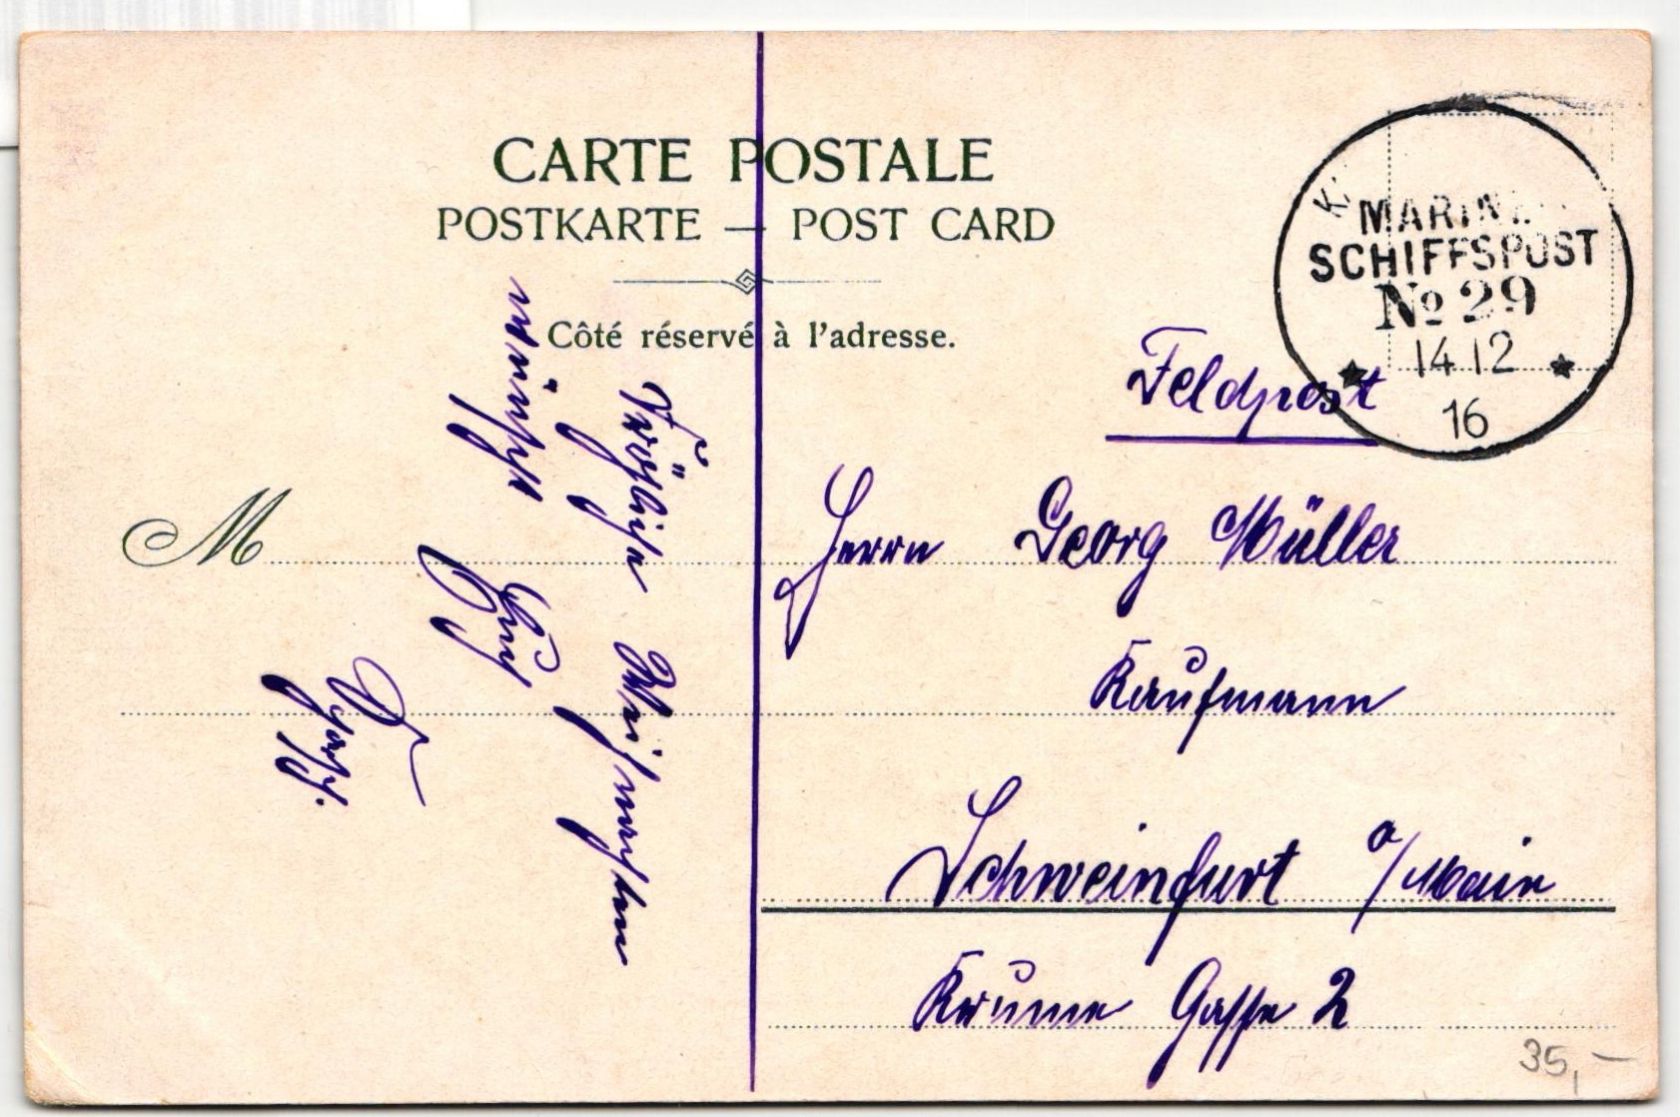 CARTE POSTALE
POSTKARTE — POST CARD
Côté réservé à l'adresse.
M
Fröhliche Weihnachten
wünscht
Georg.
K. MARINE-
SCHIFFSPOST
No 29
14 12
16
Feldpost
Herrn Georg Müller
Kaufmann
Schweinfurt a/Main
Krumme Gasse 2
35,-